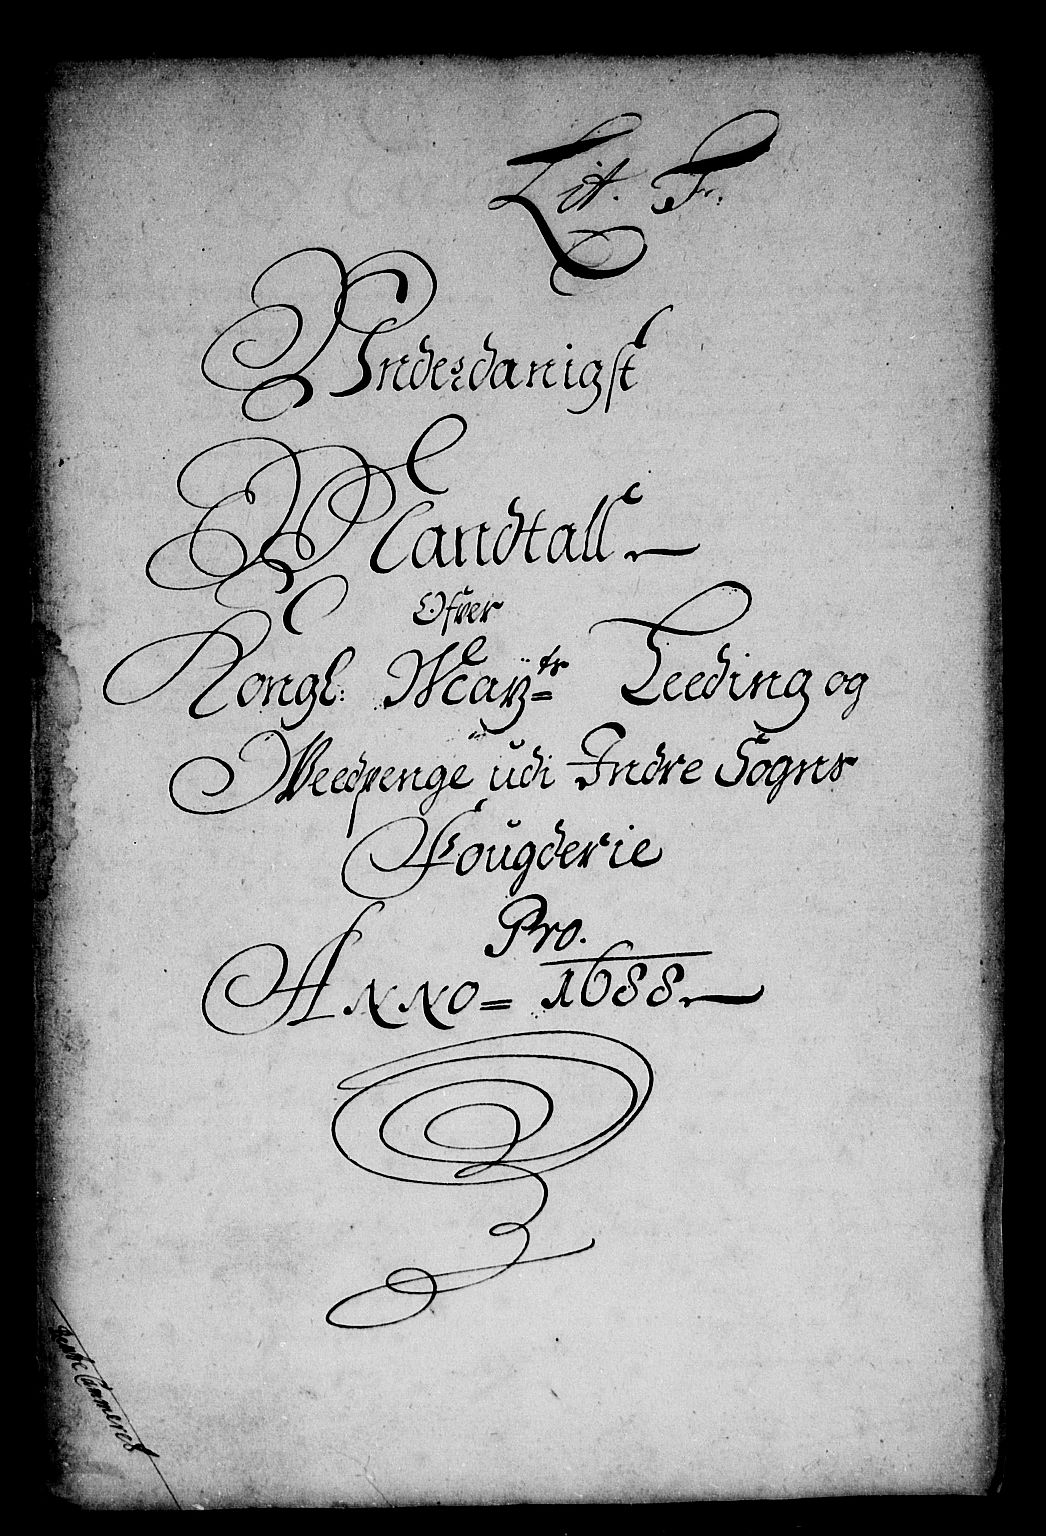 Lit. F.
Underdanigst
Mandtall
Ofver
Kongl: Maÿ=tr Leeding og
Weedpenge udi Indre Sogns
Fougderie
Pro.
ANNO= 1688.
Rente Cammeret